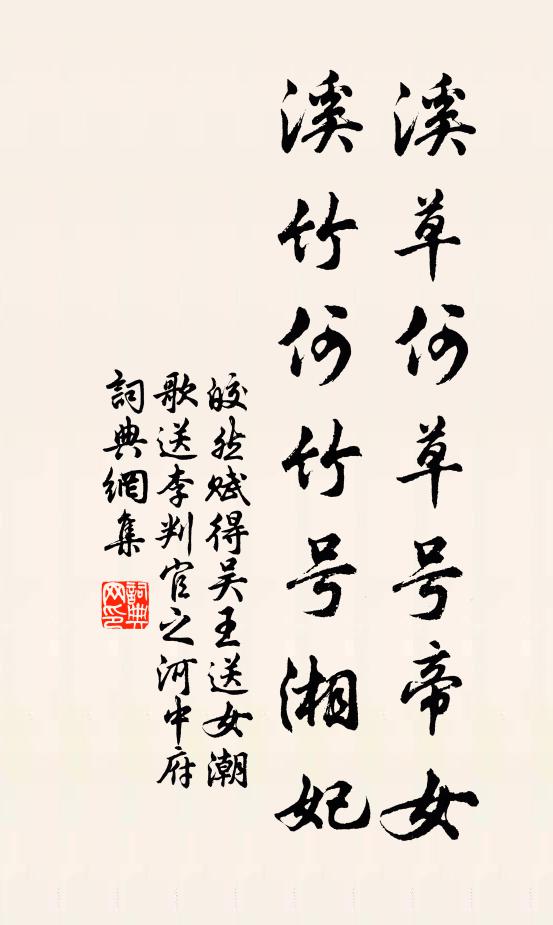 溪草何草号帝女
溪竹何竹号湘妃
皎然赋得吴王送女潮
歌送李判官之河中府
詞典網集
詞典网印